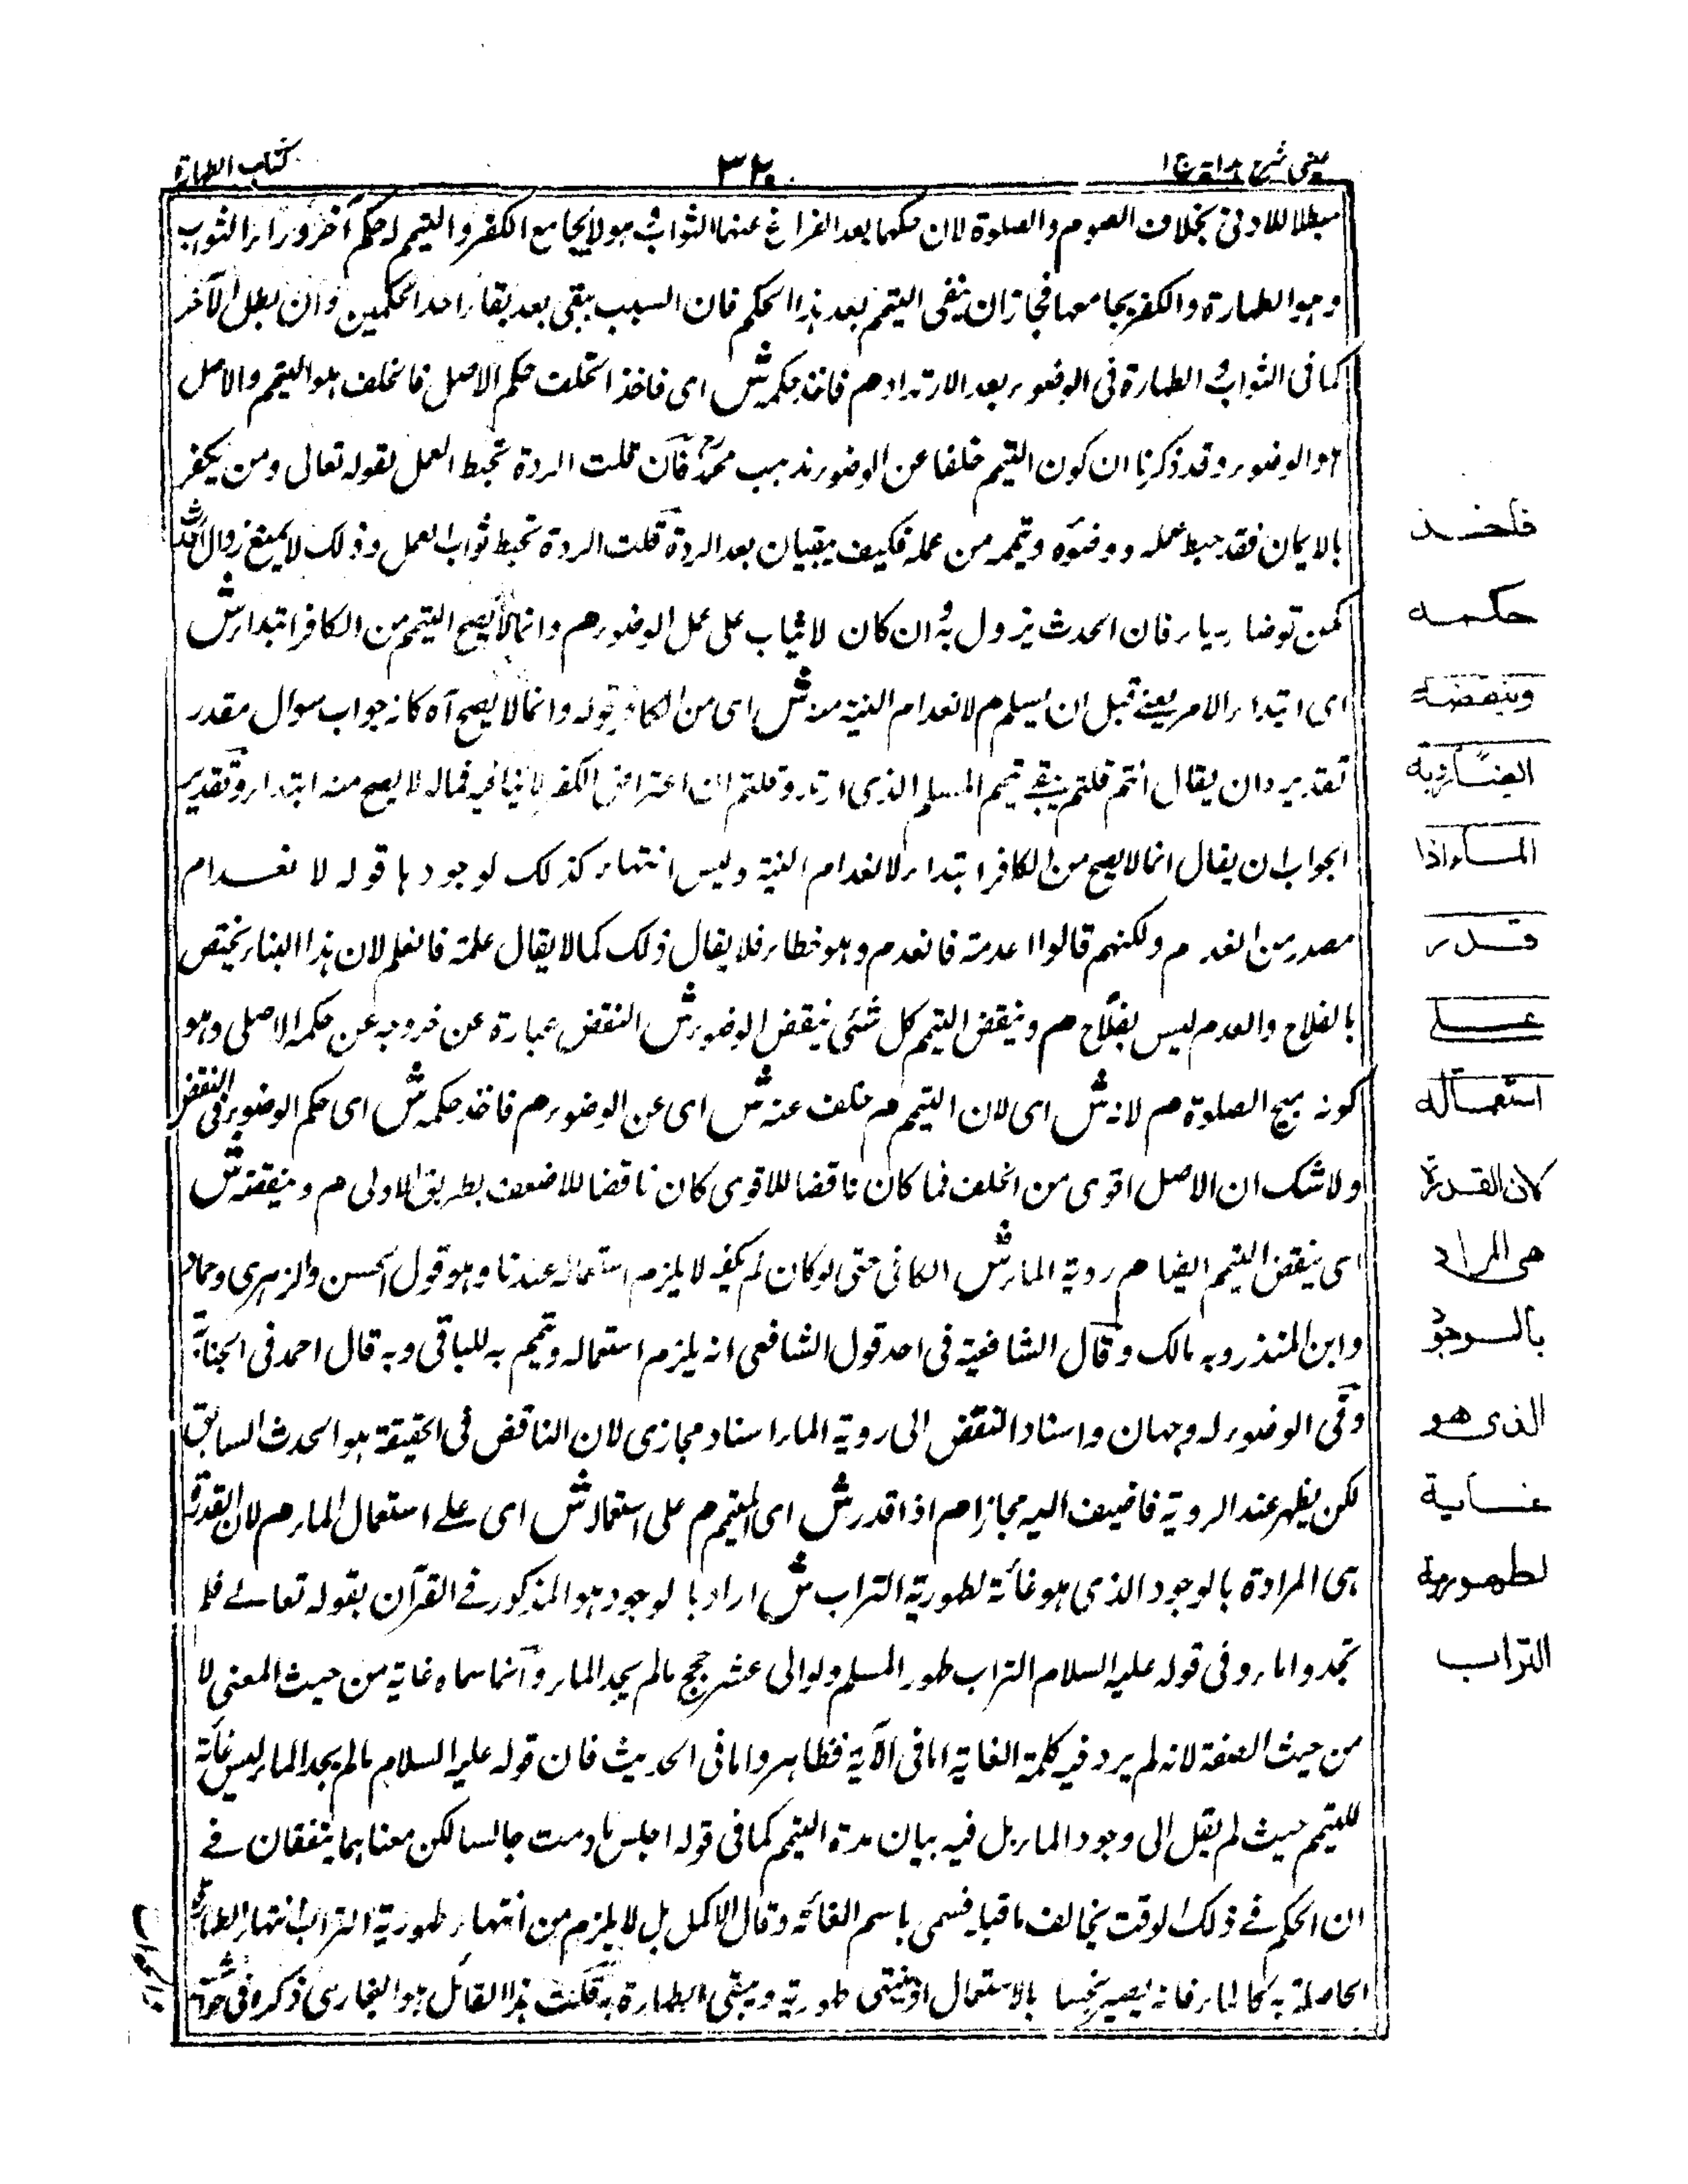 عینی شرح ہدایہ ج ۱
۳۲۰
کتاب الطہارۃ
مبطلا للادنی بخلاف الصوم والصلوۃ لان حکمہا بعد الفراغ عنہا الثواب وہو لا یجامع الکفر والتیمم لہ حکم آخر وراء الثواب
وہو الطہارۃ والکفر یجامعہا فجاز ان یبقی التیمم بعد ہذا الحکم فان السبب یبقی بعد بقاء احد الحکمین وان بطل الآخر
کما فی الثواب والطہارۃ فی الوضوء بعد الارتداد م فاخذ حکمہ ش ای فاخذ الخلف حکم الاصل فالخلف ہو التیمم والاصل
ہو الوضوء وقد ذکرنا ان کون التیمم خلفا عن الوضوء مذہب محمدؒ فان قلت الردۃ تحبط العمل لقولہ تعالی ومن یکفر
بالایمان فقد حبط عملہ ووضوءہ وتیممہ من عملہ فکیف یبقیان بعد الردۃ قلت الردۃ تحبط ثواب العمل وذلک لا یمنع زوال الحدث
کمن توضا ریاء فان الحدث یزول بہ وان کان لا یثاب علی عمل الوضوء م وانما لا یصح التیمم من الکافر ابتداء ش
ای ابتداء الامر یعنے قبل ان یسلم م لانعدام النیۃ منہ ش ای من الکافر قولہ وانما لا یصح آہ کانہ جواب سوال مقدر
تقدیرہ ان یقال انتم قلتم یبقے تیمم المسلم الذی ارتد وقلتم ان اعتراض الکفر لا ینافیہ فمالہ لا یصح منہ ابتداء وتقدیر
الجواب ان یقال انما لا یصح من الکافر ابتداء لانعدام النیۃ ولیس انتہاء کذلک لوجودہا قولہ لانعدام
مصدر من انعدم ولکنہم قالوا اعدمتہ فانعدم وہو خطاء فلا یقال ذلک کما لا یقال علمتہ فانعلم لان ہذا البناء یختص
بالعلاج والعدم لیس بعلاج م وینقض التیمم کل شئی ینقض الوضوء ش النقض عبارۃ عن خروجہ عن حکمہ الاصلی وہو
کونہ مبیح الصلوۃ م لانہ ش ای لان التیمم م خلف عنہ ش ای عن الوضوء م فاخذ حکمہ ش ای حکم الوضوء فی النقض
ولا شک ان الاصل اقوی من الخلف فما کان ناقضا للاقوی کان ناقضا للاضعف بطریق الاولی م وینقضہ ش
ای ینقض التیمم ایضا م رویۃ الماء ش الکافی حتی لو کان لم یکفہ لا یلزم استعمالہ عندنا وہو قول الحسن والزہری وحماد
وابن المنذر وبہ مالک وقال الشافعیۃ فی احد قول الشافعی انہ یلزم استعمالہ ویتیمم بہ للباقی وبہ قال احمد فی الجنابۃ
وفی الوضوء لہ وجہان واسناد النقض الی رویۃ الماء اسناد مجازی لان الناقض فی الحقیقۃ ہو الحدث السابق
لکن یظہر عند الرویۃ فاضیف الیہ مجازا م اذا قدر ش ای المتیمم م علی استعمالہ ش ای علے استعمال الماء م لان القدرۃ
ہی المرادۃ بالوجود الذی ہو غایۃ لطہوریۃ التراب ش اراد بالوجود ہو المذکور فے القرآن بقولہ تعالے فلم
تجدوا ماء وفی قولہ علیہ السلام التراب طہور المسلم ولو الی عشر حجج مالم یجد الماء وانما سماہ غایۃ من حیث المعنی لا
من حیث الصفۃ لانہ لم یرد فیہ کلمۃ الغایۃ اما فی الآیۃ فظاہر واما فی الحدیث فان قولہ علیہ السلام مالم یجد الماء لیس غایۃ
للتیمم حیث لم یقل الی وجود الماء بل فیہ بیان مدۃ التیمم کما فی قولہ اجلس ما دمت جالسا لکن معناہما یتفقان فے
ان الحکم فے ذلک الوقت یخالف ما قبلہ فسمی باسم الغایۃ وقال الاکمل بل لا یلزم من انتہاء طہوریۃ التراب انتہاء الطہارۃ
الحاصلۃ بہ کالماء فانہ یصیر نجسا بالاستعمال وتنتہی طہوریتہ ویبقی الطہارۃ بہ قلت ہذا القائل ہو البخاری ذکرہ فی
فاخذ
حکمہ
وینقضہ
ایضا رویۃ
الماء اذا
قدر
علے
استعمالہ
لان القدرۃ
ھی المراد
بالوجود
الذی ھو
غایۃ
لطہوریۃ
التراب